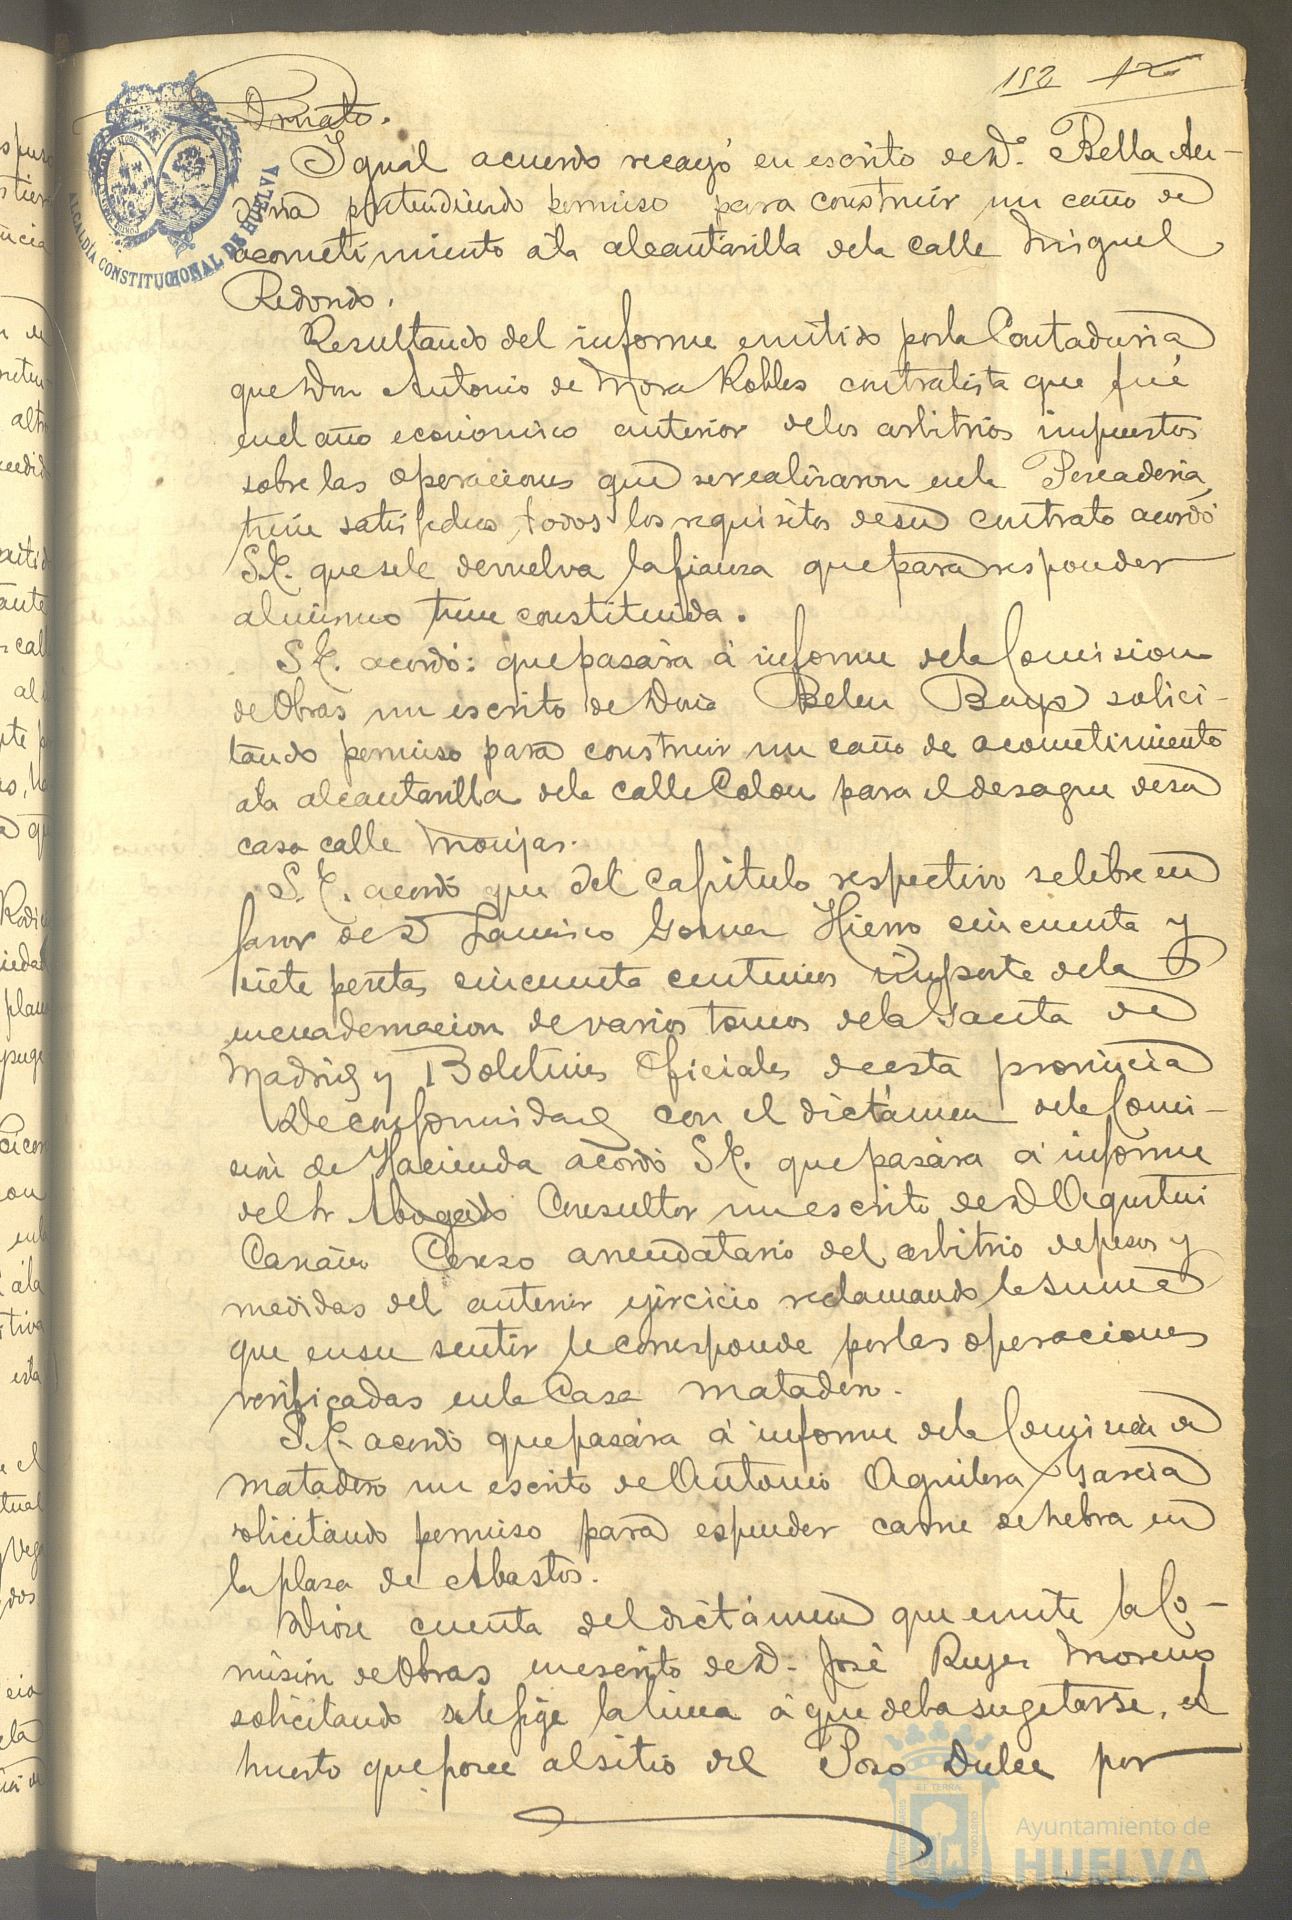 182 12
Ornato.
Igual acuerdo recayó en escrito de Dª. Bella
pretendiendo permiso para construir un caño de
acometimiento á la alcantarilla de la calle Miguel
Redondo.
Resultando del informe emitido por la Contaduria
que Don Antonio de Mora Robles contratista que fué
en el año economico anterior de los arbitrios impuestos
sobre las operaciones que se realizaron en la Pescaderia,
tiene satisfechos todos los requisitos de su contrato acordó
S.E. que se le devuelva la fianza que para responder
al mismo tiene constituida.
S.E. acordó: que pasára á informe de la Comision
de Obras un escrito de Doña Belen solici-
tando permiso para construir un caño de acometimiento
a la alcantarilla de la calle Colon para el desague de su
casa calle Monjas.
S.E. acordó que del capitulo respectivo se libre en
favor de D Francisco Gomez Hierro cincuenta y
siete pesetas cincuenta centimos importe de la
encuadernacion de varios tomos de la Gaceta de
Madrid y Boletines Oficiales de esta provincia
De conformidad con el dictámen de la Comi-
sión de Hacienda acordó S.E. que pasára á informe
del Sr Abogado Consultor un escrito de D Agustin
Cerezo arrendatario del arbitrio de pesos y
medidas del anterior ejercicio reclamando la suma
que en su sentir le corresponde por las operaciones
verificadas en la Casa matadero.
S.E. acordó que pasára á informe de la Comisión de
matadero un escrito de Antonio Aguilera Garcia
solicitando permiso para espender carne de hebra en
la plaza de Abastos.
Dióse cuenta del dictámen que emite la Co-
misión de Obras en escrito de D. José Moreno
solicitando se le fije la linea á que deba sugetarse, el
huerto que posee al sitio del Pozo Dulce por
ALCALDÍA CONSTITUCIONAL DE HUELVA
Ayuntamiento de
HUELVA